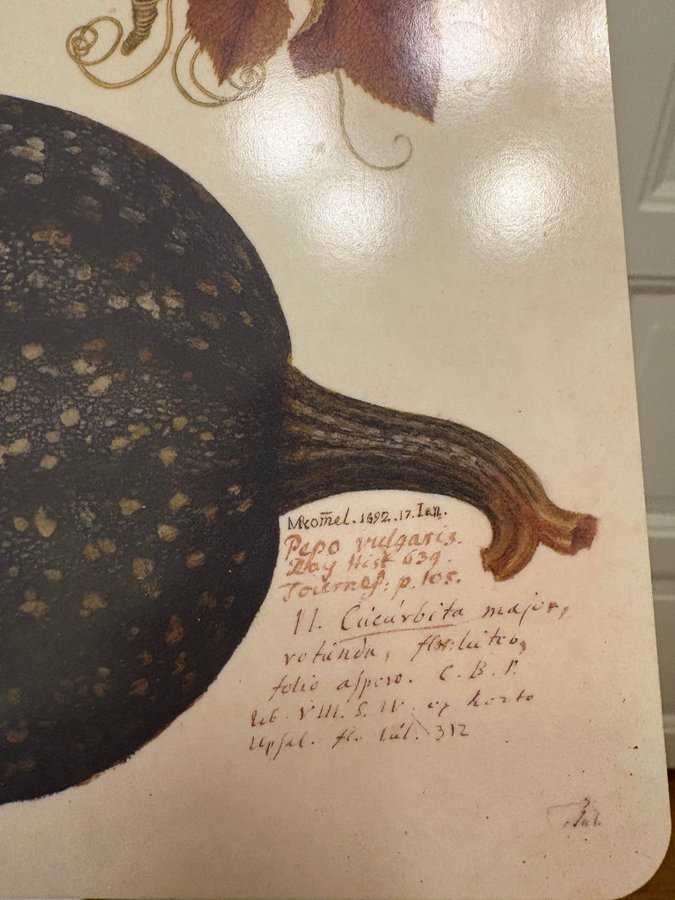 MRom̄el. 1692. 17. Ian.
Pepo vulgaris.
Ray Hist 639.
Tournef: p. 105.
11. Cucúrbita major,
rotúnda, flore lúteo,
folio aspero. C. B. P.
Lib. VIII. S. IV. horto
Upsal. fl. 312